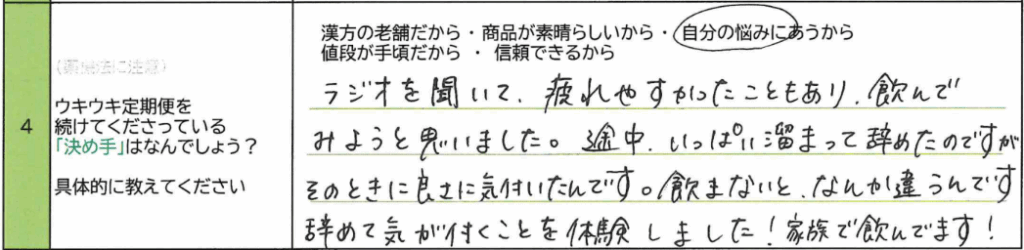 漢方の老舗だから・商品が素晴らしいから・自分の悩みにあうから
値段が手頃だから ・ 信頼できるから
(薬機法に注意)
4
ウキウキ定期便を
続けてくださっている
「決め手」はなんでしょう？
具体的に教えてください
ラジオを聞いて、疲れやすかったこともあり、飲んで
みようと思いました。途中、いっぱい溜まって辞めたのですが
そのときに良さに気付いたんです。飲まないと、なんか違うんです
辞めて気が付くことを体験しました！家族で飲んでます！